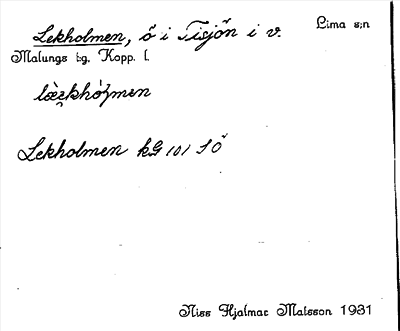 Lekholmen, ö i Tisjön i v. Lima s:n
Malungs t:g. Kopp. l.
Lekholmen kG 101 SÖ
Niss Hjalmar Matsson 1931